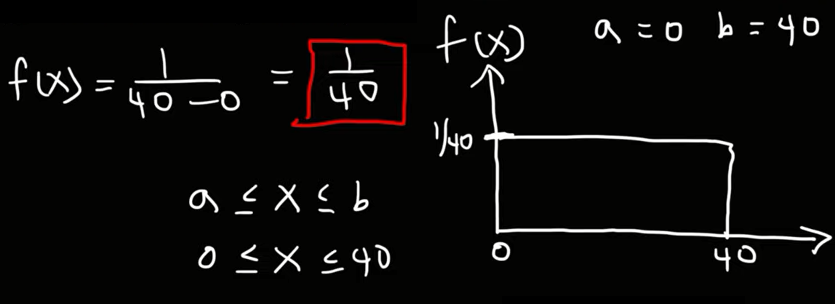 f(x) = 1/(40 - 0) = 1/40
a ≤ x ≤ b
0 ≤ x ≤ 40
a = 0 b = 40
f(x)
1/40
0 40